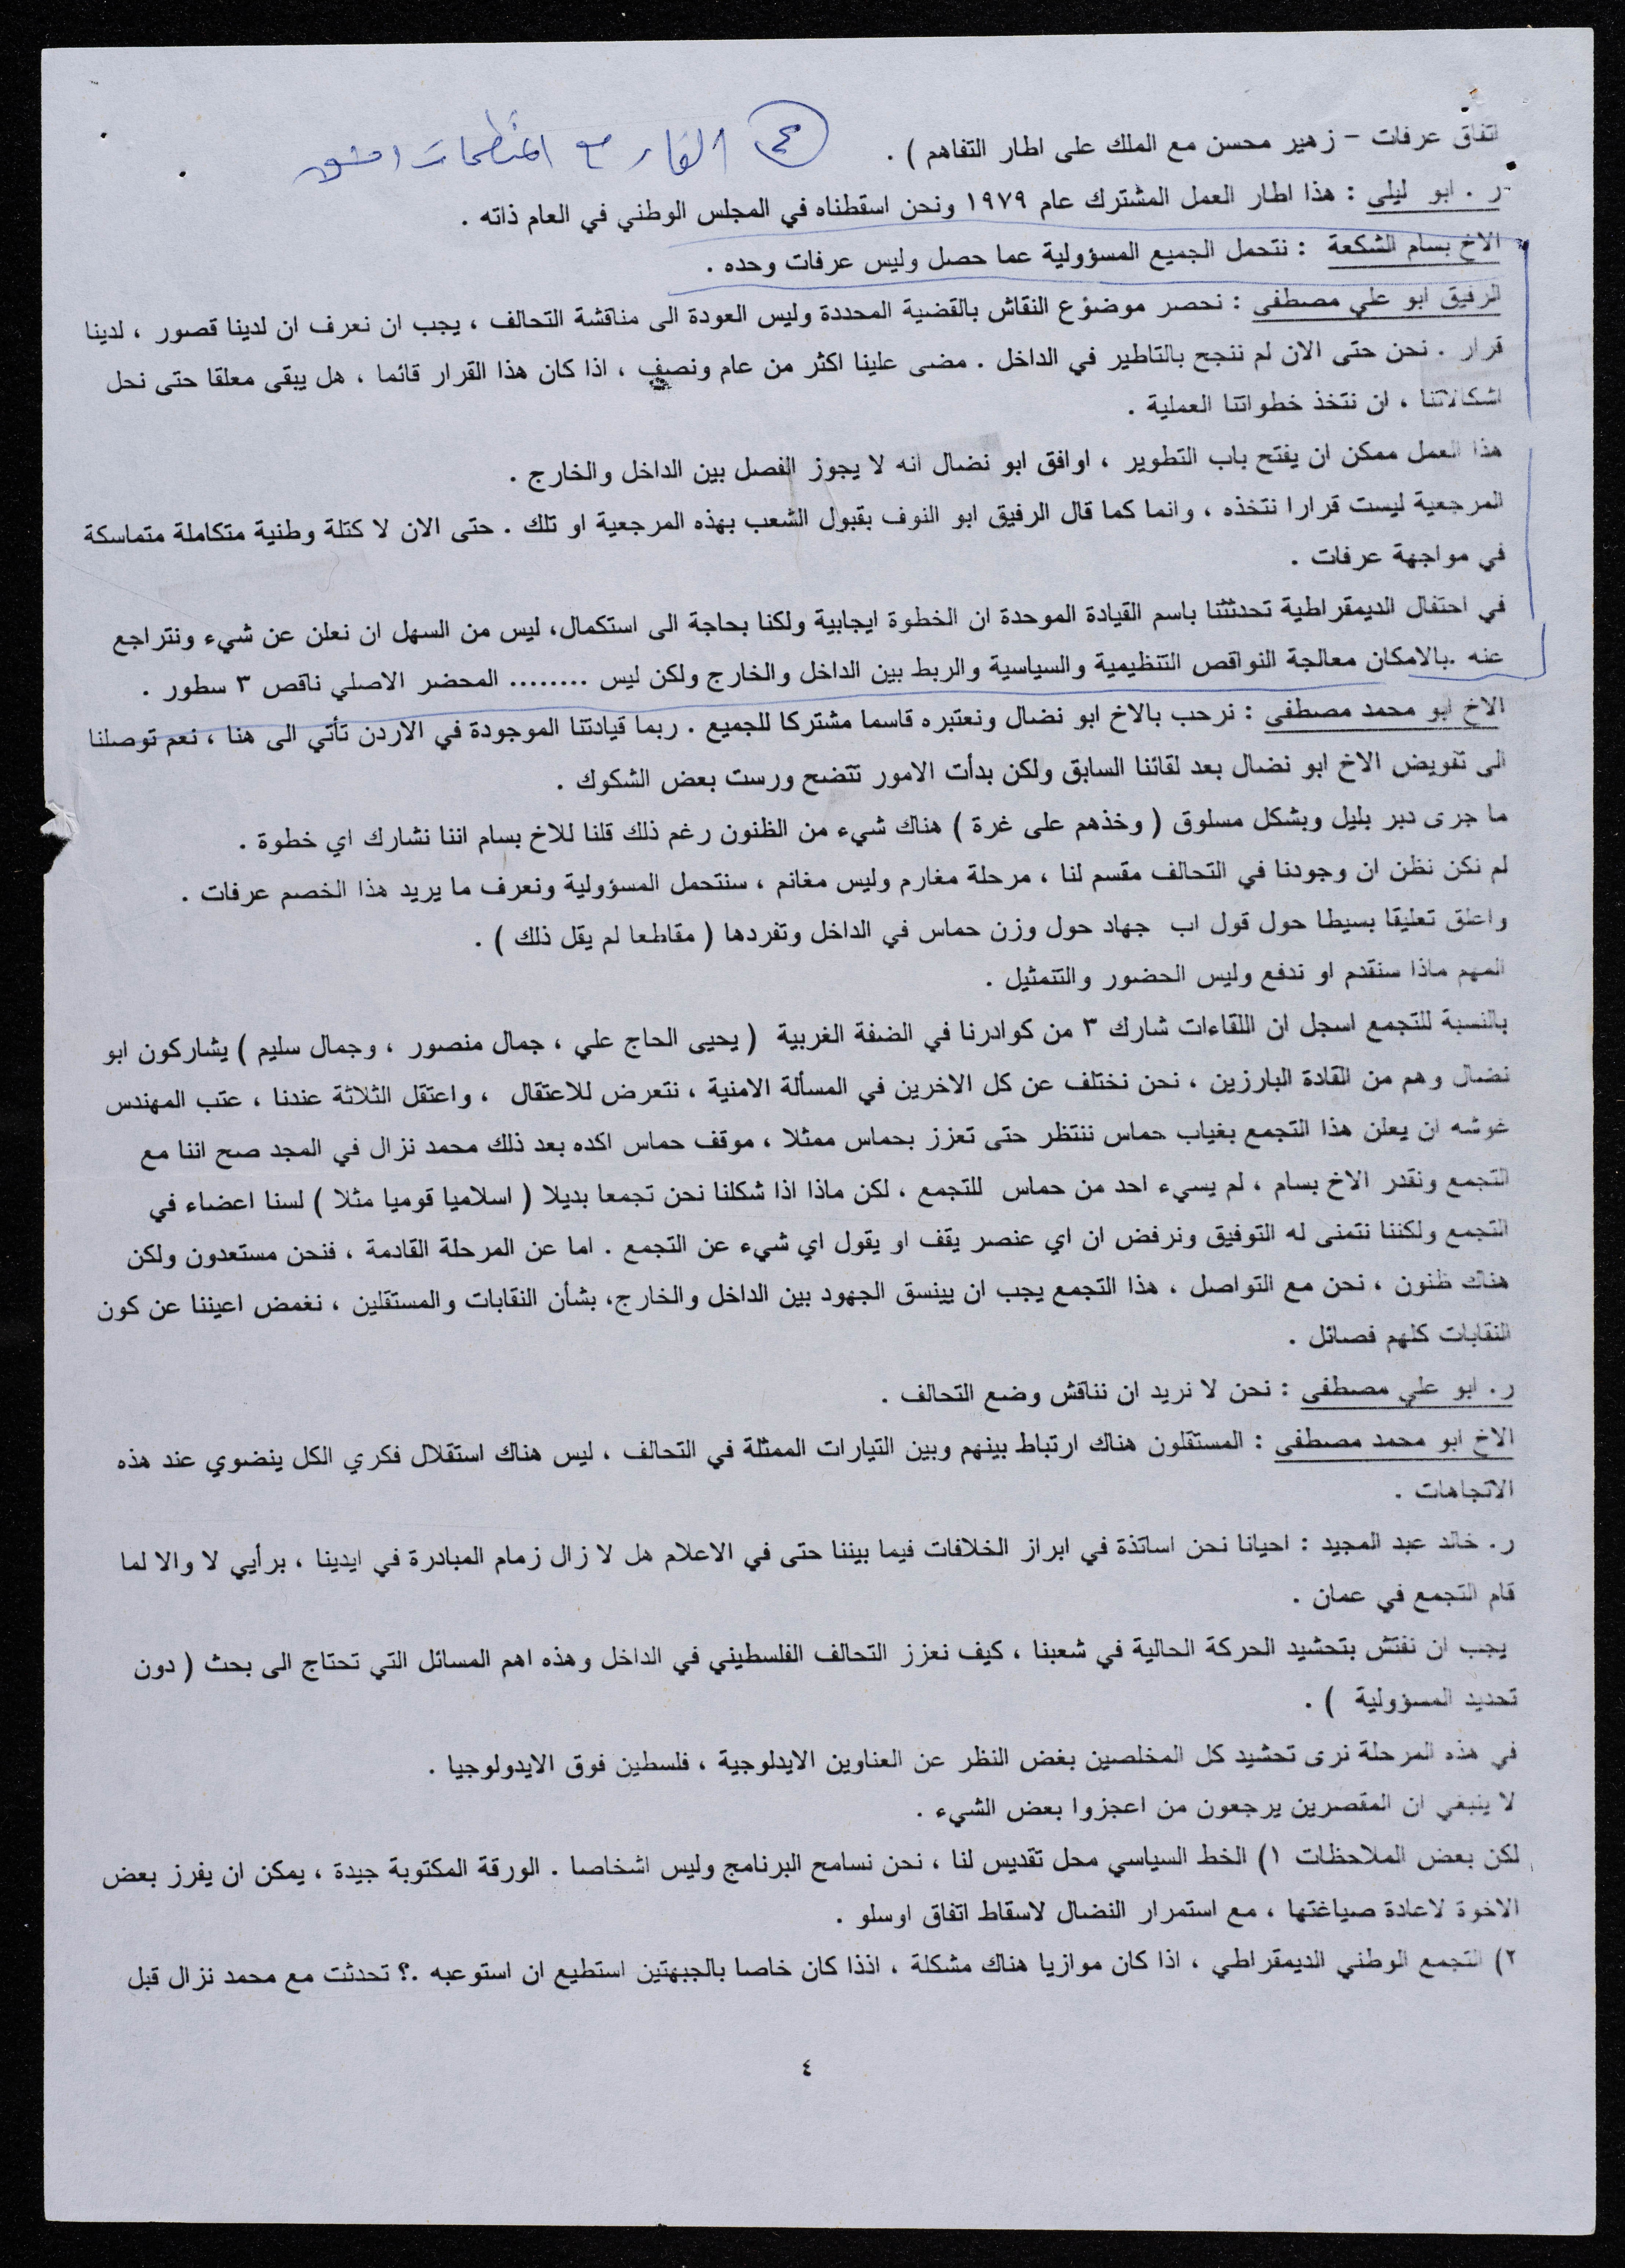 اتفاق عرفات - زهير محسن مع الملك على اطار التفاهم ) .
٣ اللقاء مع المنظمات دمشق
ر . ابو ليلى : هذا اطار العمل المشترك عام ١٩٧٩ ونحن اسقطناه في المجلس الوطني في العام ذاته .
الاخ بسام الشكعة : نتحمل الجميع المسؤولية عما حصل وليس عرفات وحده .
الرفيق ابو علي مصطفى : نحصر موضؤع النقاش بالقضية المحددة وليس العودة الى مناقشة التحالف ، يجب ان نعرف ان لدينا قصور ، لدينا
قرار . نحن حتى الان لم ننجح بالتاطير في الداخل . مضى علينا اكثر من عام ونصف ، اذا كان هذا القرار قائما ، هل يبقى معلقا حتى نحل
اشكالاتنا ، ان نتخذ خطواتنا العملية .
هذا العمل ممكن ان يفتح باب التطوير ، اوافق ابو نضال انه لا يجوز الفصل بين الداخل والخارج .
المرجعية ليست قرارا نتخذه ، وانما كما قال الرفيق ابو النوف بقبول الشعب بهذه المرجعية او تلك . حتى الان لا كتلة وطنية متكاملة متماسكة
في مواجهة عرفات .
في احتفال الديمقراطية تحدثثنا باسم القيادة الموحدة ان الخطوة ايجابية ولكنا بحاجة الى استكمال، ليس من السهل ان نعلن عن شيء ونتراجع
عنه .بالامكان معالجة النواقص التنظيمية والسياسية والربط بين الداخل والخارج ولكن ليس ........ المحضر الاصلي ناقص ٣ سطور .
الاخ ابو محمد مصطفى : نرحب بالاخ ابو نضال ونعتبره قاسما مشتركا للجميع . ربما قيادتنا الموجودة في الاردن تأتي الى هنا ، نعم توصلنا
الى تفويض الاخ ابو نضال بعد لقائنا السابق ولكن بدأت الامور تتضح ورست بعض الشكوك .
ما جرى دبر بليل وبشكل مسلوق ( وخذهم على غرة ) هناك شيء من الظنون رغم ذلك قلنا للاخ بسام اننا نشارك اي خطوة .
لم نكن نظن ان وجودنا في التحالف مقسم لنا ، مرحلة مغارم وليس مغانم ، سنتحمل المسؤولية ونعرف ما يريد هذا الخصم عرفات .
واعلق تعليقا بسيطا حول قول اب جهاد حول وزن حماس في الداخل وتفردها ( مقاطعا لم يقل ذلك ) .
المهم ماذا سنقدم او ندفع وليس الحضور والتتمثيل .
بالنسبة للتجمع اسجل ان اللقاءات شارك ٣ من كوادرنا في الضفة الغربية ( يحيى الحاج علي ، جمال منصور ، وجمال سليم ) يشاركون ابو
نضال وهم من القادة البارزين ، نحن نختلف عن كل الاخرين في المسألة الامنية ، نتعرض للاعتقال ، واعتقل الثلاثة عندنا ، عتب المهندس
غوشه ان يعلن هذا التجمع بغياب حماس ننتظر حتى تعزز بحماس ممثلا ، موقف حماس اكده بعد ذلك محمد نزال في المجد صح اننا مع
التجمع ونقدر الاخ بسام ، لم يسيء احد من حماس للتجمع ، لكن ماذا اذا شكلنا نحن تجمعا بديلا ( اسلاميا قوميا مثلا ) لسنا اعضاء في
التجمع ولكننا نتمنى له التوفيق ونرفض ان اي عنصر يقف او يقول اي شيء عن التجمع . اما عن المرحلة القادمة ، فنحن مستعدون ولكن
هناك ظنون ، نحن مع التواصل ، هذا التجمع يجب ان يينسق الجهود بين الداخل والخارج، بشأن النقابات والمستقلين ، نغمض اعيننا عن كون
النقابات كلهم فصائل .
ر. ابو علي مصطفى : نحن لا نريد ان نناقش وضع التحالف .
الاخ ابو محمد مصطفى : المستقلون هناك ارتباط بينهم وبين التيارات الممثلة في التحالف ، ليس هناك استقلال فكري الكل ينضوي عند هذه
الاتجاهات .
ر. خالد عبد المجيد : احيانا نحن اساتذة في ابراز الخلافات فيما بيننا حتى في الاعلام هل لا زال زمام المبادرة في ايدينا ، برأيي لا والا لما
قام التجمع في عمان .
يجب ان نفتش بتحشيد الحركة الحالية في شعبنا ، كيف نعزز التحالف الفلسطيني في الداخل وهذه اهم المسائل التي تحتاج الى بحث ( دون
تحديد المسؤولية ) .
في هذه المرحلة نرى تحشيد كل المخلصين بغض النظر عن العناوين الايدلوجية ، فلسطين فوق الايدولوجيا .
لا ينبغي ان المقصرين يرجعون من اعجزوا بعض الشيء .
لكن بعض الملاحظات ١) الخط السياسي محل تقديس لنا ، نحن نسامح البرنامج وليس اشخاصا . الورقة المكتوبة جيدة ، يمكن ان يفرز بعض
الاخوة لاعادة صياغتها ، مع استمرار النضال لاسقاط اتفاق اوسلو .
٢) التجمع الوطني الديمقراطي ، اذا كان موازيا هناك مشكلة ، اذذا كان خاصا بالجبهتين استطيع ان استوعبه .؟ تحدثت مع محمد نزال قبل
٤